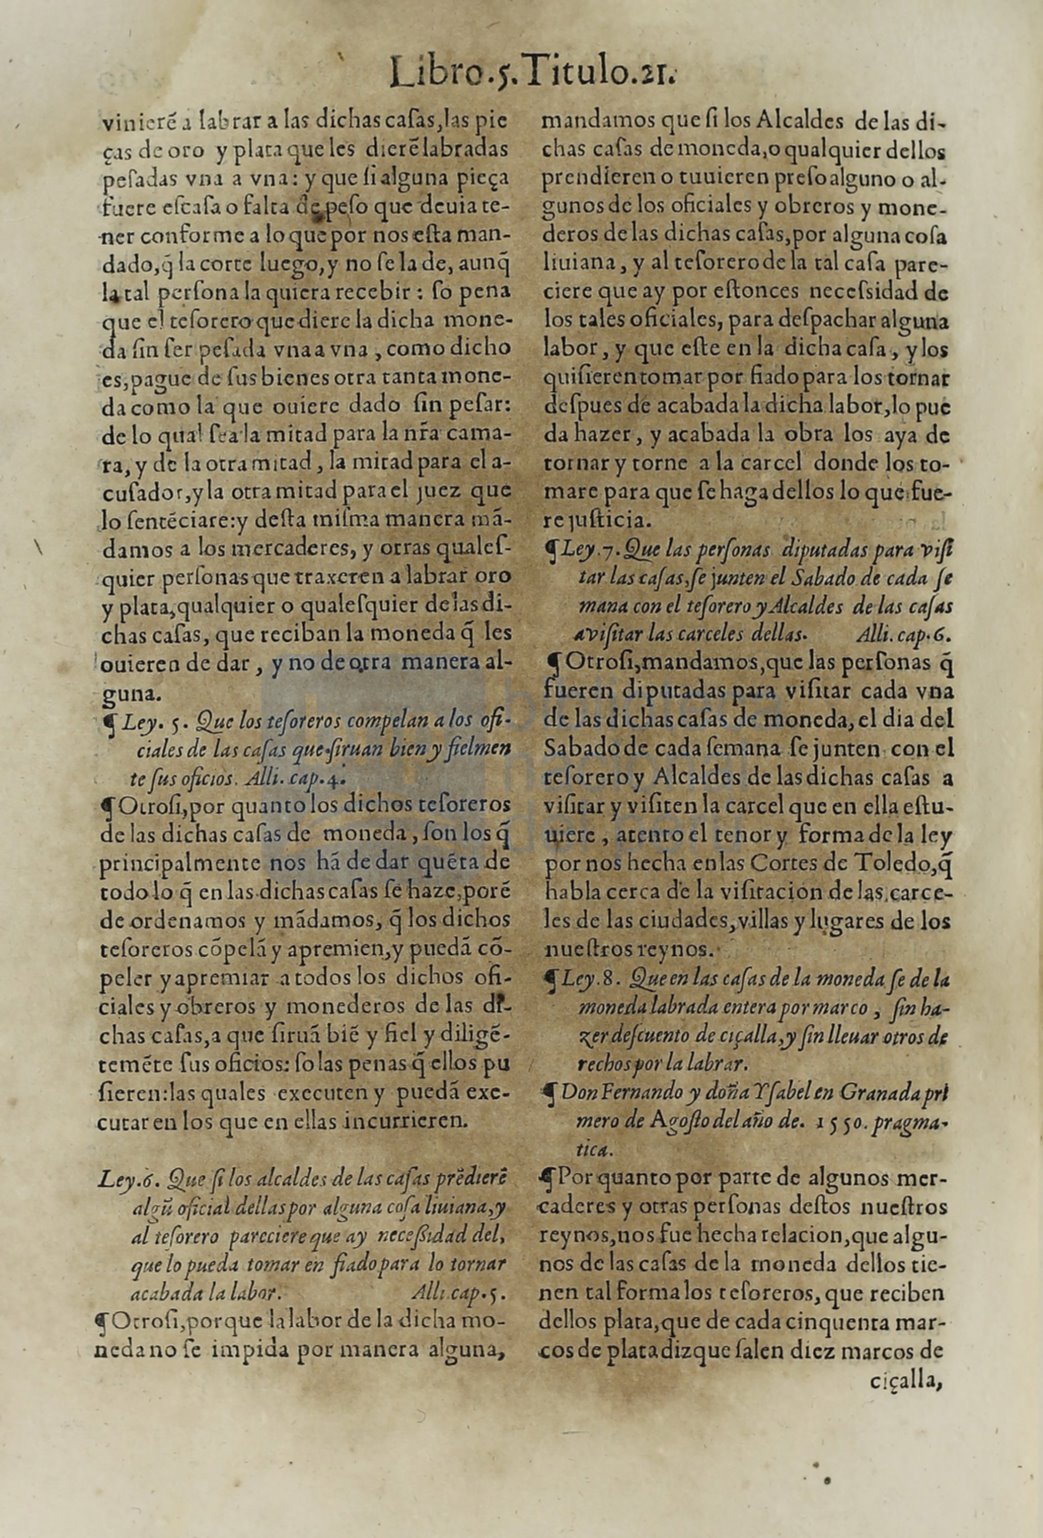 Libro.5.Titulo.21.
vinierẽ a labrar a las dichas casas,las pie
ças de oro y plata que les dierẽ labradas
pesadas vna a vna: y que si alguna pieça
fuere escasa o falta de peso que deuia te-
ner conforme a lo que por nos esta man-
dado,q̃ la corte luego,y no se la de, aunq̃
la tal persona la quiera recebir : so pena
que el tesorero que diere la dicha mone-
da sin ser pesada vna a vna , como dicho
es,pague de sus bienes otra tanta mone-
da como la que ouiere dado sin pesar:
de lo qual sea la mitad para la nr̃a cama-
ra, y de la otra mitad , la mitad para el a-
cusador,y la otra mitad para el juez que
lo sentẽciare:y desta misma manera mã-
damos a los mercaderes, y otras quales-
quier personas que traxeren a labrar oro
y plata,qualquier o qualesquier de las di-
chas casas, que reciban la moneda q̃ les
ouieren de dar , y no de otra manera al-
guna.
¶ Ley. 5. Que los tesoreros compelan a los ofi-
ciales de las casas que siruan bien y fielmen
te sus oficios. Alli. cap.4.
¶Otrosi,por quanto los dichos tesoreros
de las dichas casas de moneda , son los q̃
principalmente nos hã de dar quẽta de
todo lo q̃ en las dichas casas se haze,porẽ
de ordenamos y mãdamos, q̃ los dichos
tesoreros cõpelã y apremien,y puedã cõ-
peler y apremiar a todos los dichos ofi-
ciales y obreros y monederos de las di-
chas casas,a que siruã biẽ y fiel y diligẽ-
temẽte sus oficios: so las penas q̃ ellos pu
sieren:las quales executen y puedã exe-
cutar en los que en ellas incurrieren.
Ley.6. Que si los alcaldes de las casas prẽdierẽ
algũ oficial dellas por alguna cosa liuiana,y
al tesorero pareciere que ay necessidad del,
que lo pueda tomar en fiado para lo tornar
acabada la labor. Alli.cap.5.
¶Otrosi,porque la labor de la dicha mo-
neda no se impida por manera alguna,
mandamos que si los Alcaldes de las di-
chas casas de moneda,o qualquier dellos
prendieren o tuuieren preso alguno o al-
gunos de los oficiales y obreros y mone-
deros de las dichas casas,por alguna cosa
liuiana, y al tesorero de la tal casa pare-
ciere que ay por estonces necessidad de
los tales oficiales, para despachar alguna
labor , y que este en la dicha casa , y los
quisieren tomar por fiado para los tornar
despues de acabada la dicha labor,lo pue
da hazer , y acabada la obra los aya de
tornar y torne a la carcel donde los to-
mare para que se haga dellos lo que fue-
re justicia.
¶Ley.7.Que las personas diputadas para visi
tar las casas,se junten el Sabado de cada se
mana con el tesorero y Alcaldes de las casas
a visitar las carceles dellas. Alli.cap.6.
¶Otrosi,mandamos,que las personas q̃
fueren diputadas para visitar cada vna
de las dichas casas de moneda,el dia del
Sabado de cada semana se junten con el
tesorero y Alcaldes de las dichas casas a
visitar y visiten la carcel que en ella estu-
uiere , atento el tenor y forma de la ley
por nos hecha en las Cortes de Toledo,q̃
habla cerca de la visitacion de las carce-
les de las ciudades,villas y lugares de los
nuestros reynos.
¶Ley.8. Que en las casas de la moneda se de la
moneda labrada entera por marco , sin ha-
zer descuento de ciçalla,y sin lleuar otros de
rechos por la labrar.
¶Don Fernando y doña Ysabel en Granada pri
mero de Agosto del año de. 1550. pragma-
tica.
¶Por quanto por parte de algunos mer-
caderes y otras personas destos nuestros
reynos,nos fue hecha relacion,que algu-
nos de las casas de la moneda dellos tie-
nen tal forma los tesoreros, que reciben
dellos plata,que de cada cinquenta mar-
cos de plata diz que salen diez marcos de
ciçalla,